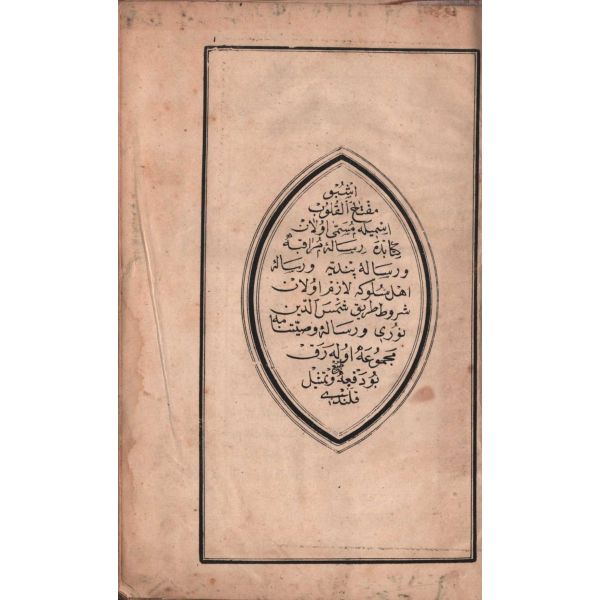 اشبو
مفتاح القلوب
اسميله مسمى اولان
كتابده رسالهٔ مراقبه
ورسالهٔ پنديه ورسالهٔ
اهل سلوكه لازم اولان
شروط طريق شمس الدين
نورى ورسالهٔ وصيتنامه
مجموعهٔ اوله رق
بو دفعه طبع وتمثيل
قلندى